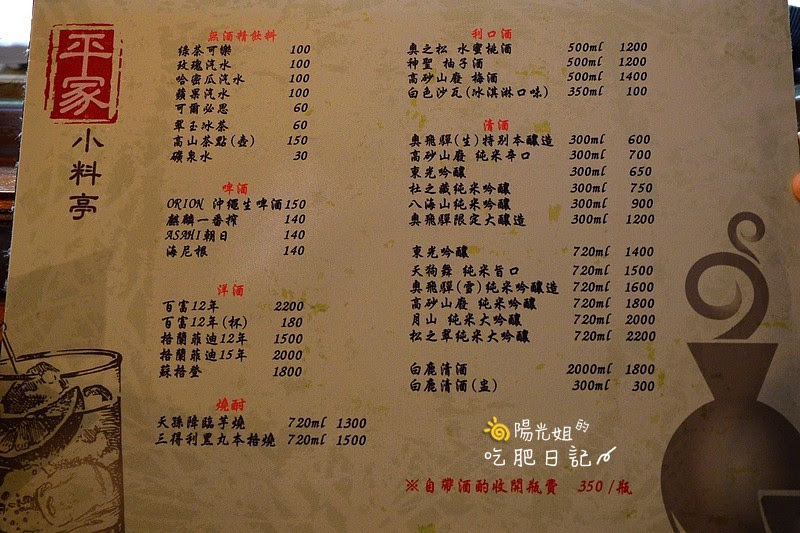 平家
小料亭
無酒精飲料
綠茶可樂 100
玫瑰汽水 100
哈密瓜汽水 100
蘋果汽水 100
可爾必思 60
翠玉冰茶 60
高山茶點(壺) 150
礦泉水 30
啤酒
ORION 沖繩生啤酒 150
麒麟一番搾 140
ASAHI朝日 140
海尼根 140
洋酒
百富12年 2200
百富12年(杯) 180
格蘭菲迪12年 1500
格蘭菲迪15年 2000
蘇格登 1800
燒酎
天孫降臨芋燒 720ml 1300
三得利黑丸本格燒 720ml 1500
利口酒
奧之松 水蜜桃酒 500ml 1200
神聖 柚子酒 500ml 1200
高砂山廢 梅酒 500ml 1400
白色沙瓦(冰淇淋口味) 350ml 100
清酒
奧飛驒(生)特別本釀造 300ml 600
高砂山廢 純米辛口 300ml 700
東光吟釀 300ml 650
杜之藏純米吟釀 300ml 750
八海山純米吟釀 300ml 900
奧飛驒限定大釀造 300ml 1200
東光吟釀 720ml 1400
天狗舞 純米旨口 720ml 1500
奧飛驒(雪)純米吟釀造 720ml 1600
高砂山廢 純米吟釀 720ml 1800
月山 純米大吟釀 720ml 2000
松之翠純米大吟釀 720ml 2200
白鹿清酒 2000ml 1800
白鹿清酒(盅) 300ml 300
陽光姐的
吃肥日記
※自帶酒酌收開瓶費 350/瓶